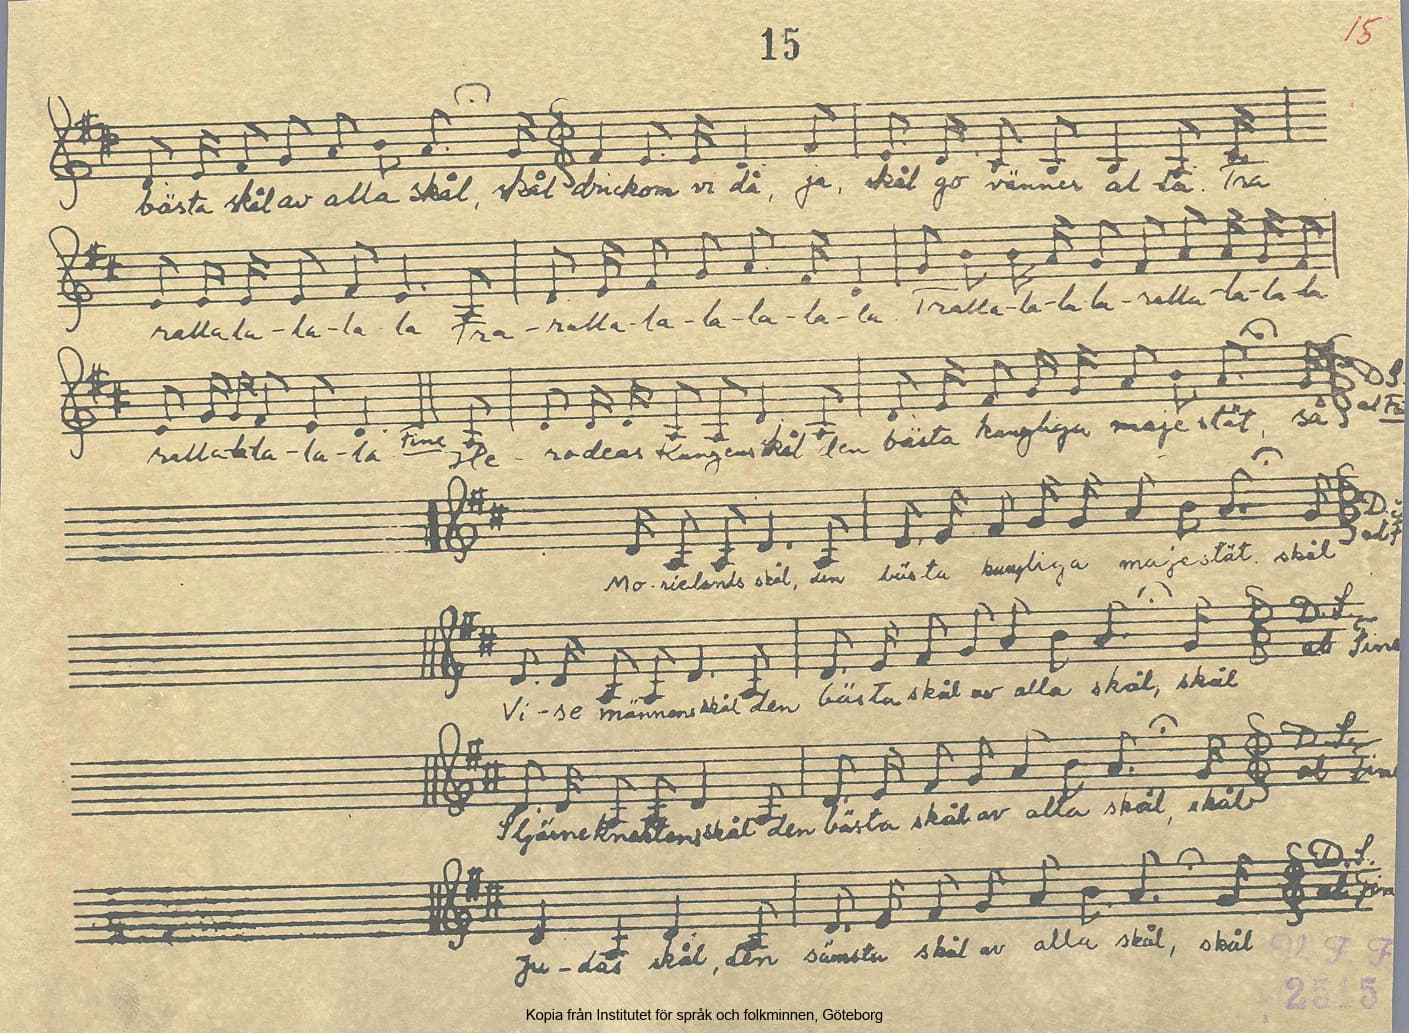 15
15
bästa skål av alla skål, skål drickom vi då, ja, skål go vänner al la. Tra
ralla la - la - la - la Tra - ralla - la - la - la - la - la Tralla - la - la la - ralla - la - la - la
ralla - la la - la - la Fine He - rodeas Kungens skål den bästa kungliga majestät, så D.S. al Fi
Mo - rielands skål, den bästa kungliga majestät. skål D.S. al F
Vi - se männens skål den bästa skål av alla skål, skål D.S. al Fine
Stjärneknektens skål den bästa skål av alla skål, skål D.S. al Fine
Ju - das skål, den sämsta skål av alla skål, skål D.S. al Fin
V. F. F.
2515
Kopia från Institutet för språk och folkminnen, Göteborg